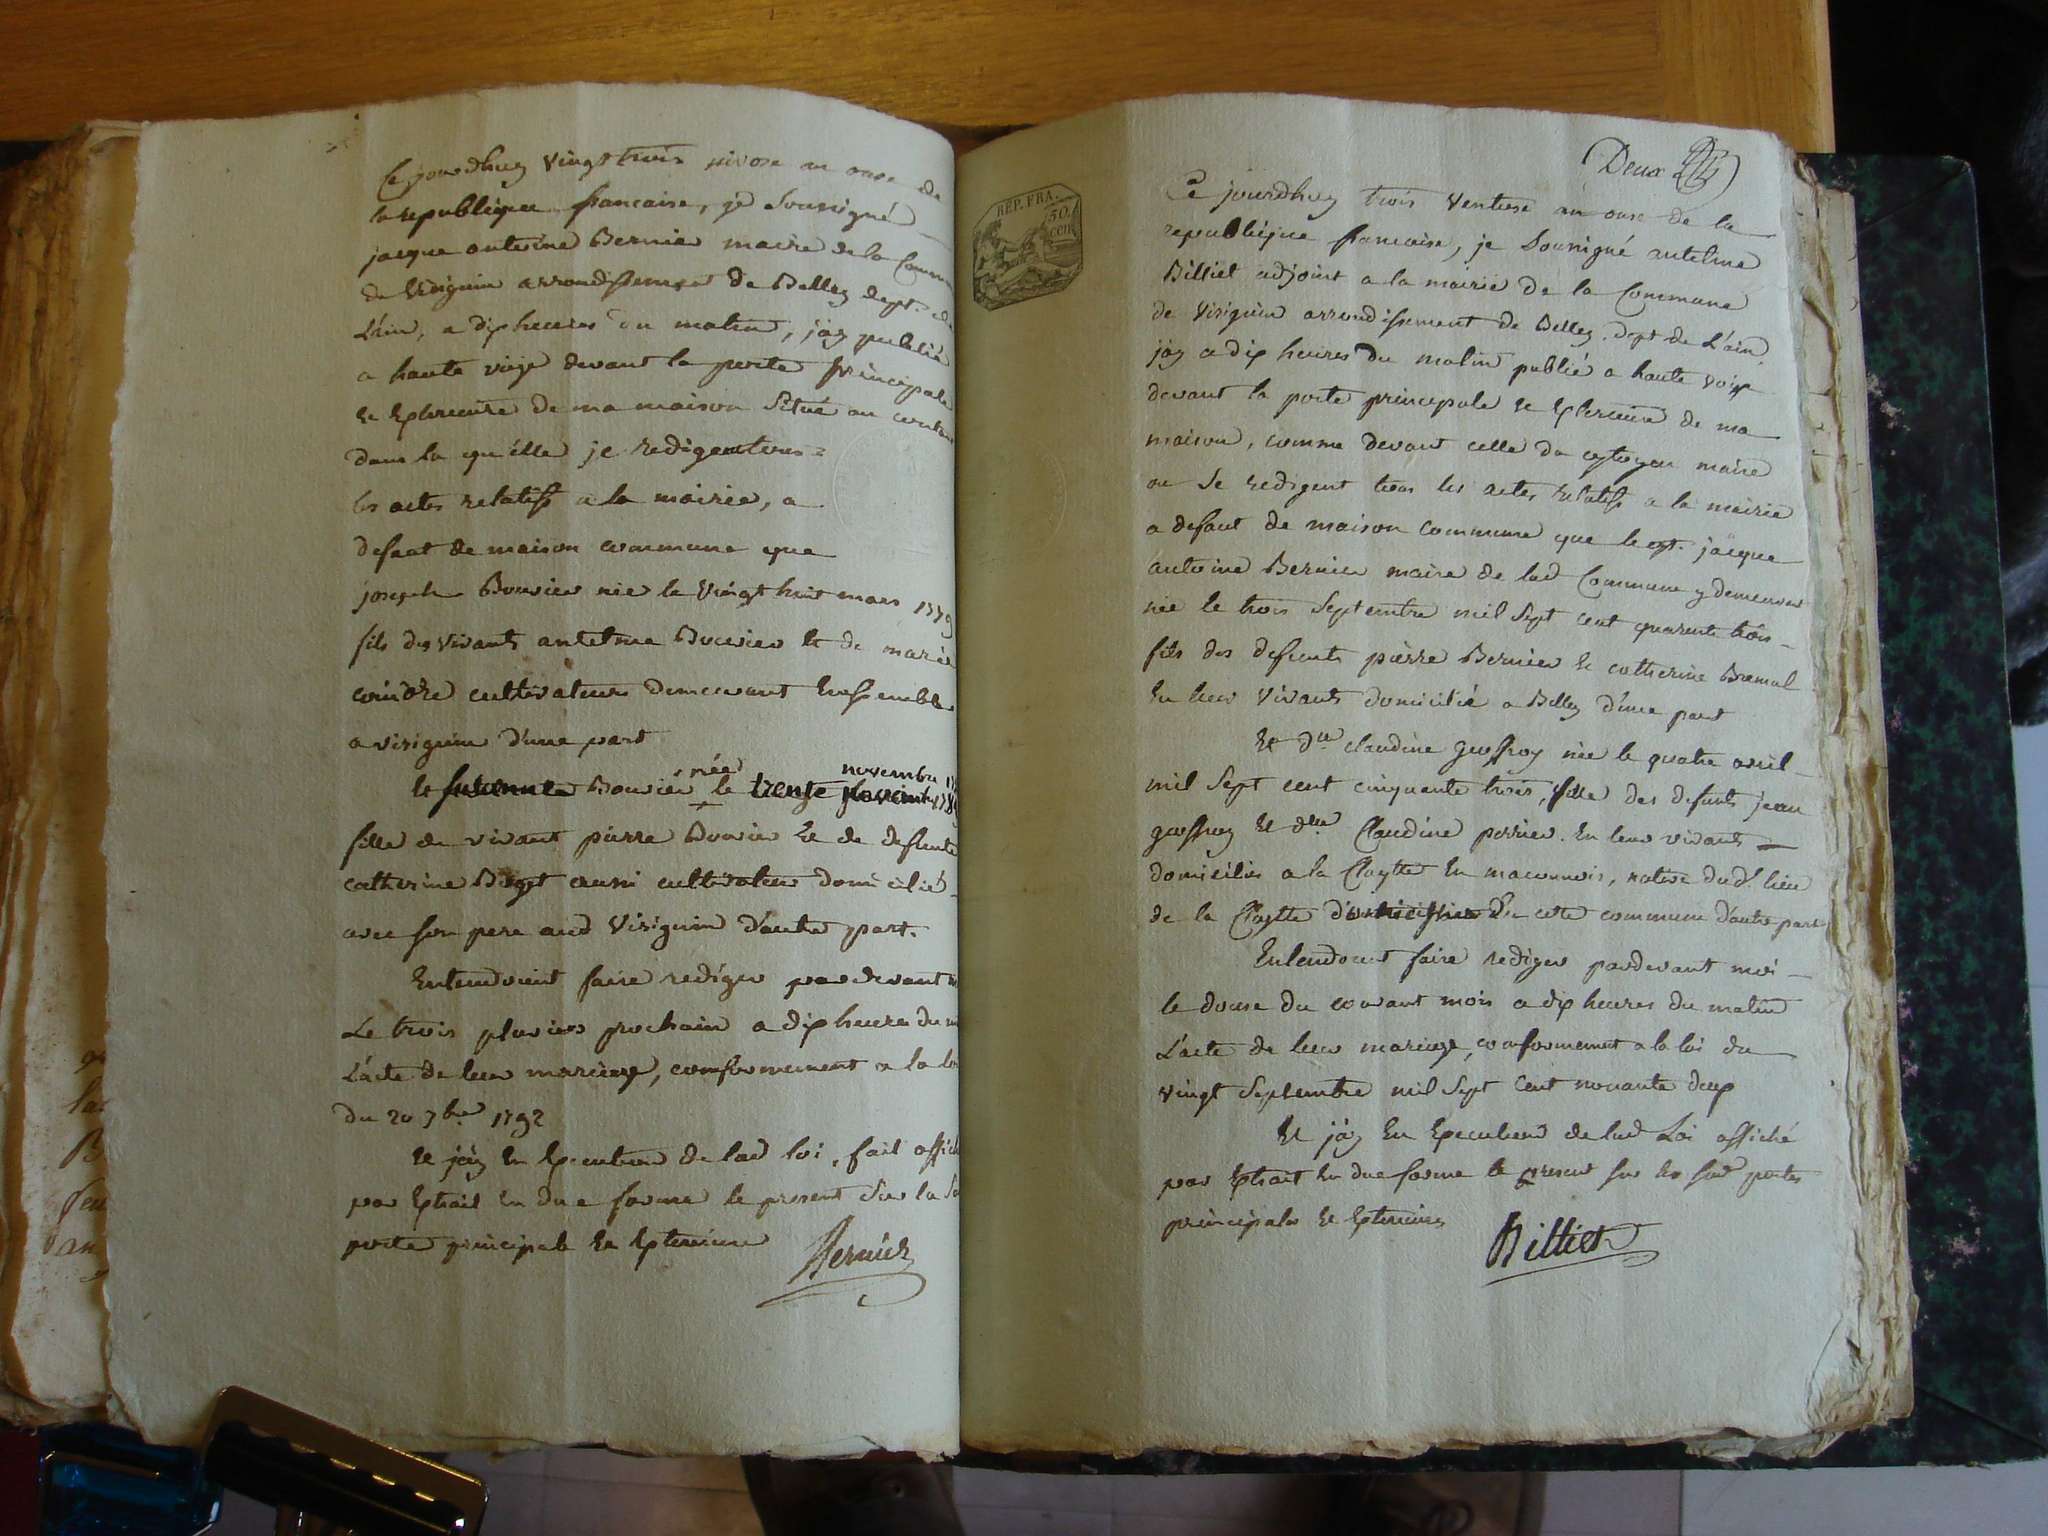 Ce jourdhuy vingt trois nivose an onse de
la republique francaise, je Soussigné
jacque antoine Bernier maire de la Comm
de Virignin arrondissement de Belley dept. de
L'ain, a dix heures du matin, j'ay publié
a haute voix devant la porte principale
et Exterieure de ma maison Situé au
dans la qu'elle je redige tous
les actes relatifs a la mairie, a
defaut de maison commune que
joseph Bouvier née le vingt huit mars 1779
fils des vivants antelme Bouvier et de marie
coindre cultivateurs demeurant Enssemble
a virignin d'une part
née novembre
Et Bouvier le trense
fille de vivant pierre Bouvier et de deffunte
catherine aussi cultivateur domicilié
avec son pere aud Virignin d'autre part.
Entendoient faire rediger pardevant m
Le trois pluvios prochain a dix heures du m
L'acte de leur mariage, conformement a la loi
du 20 7bre 1792
Et j'ay En Execution de lad loi, fait affich
par Extrait en due forme le present Sur la
porte principale et Exterieure
Bernier
Deux
REP. FRA.
50.
CEN.
Ce jourdhuy trois Ventose an onse de la
republique francaise, je Soussigné antelme
Billiet adjoint a la mairie de la Commune
de Virignin arrondissement de Belley. dept de L'ain
j'ay a dix heures du matin publié a haute voix
devant la porte principale et Exterieure de ma
maison, comme devant celle du citoyen maire
ou Se redigent tous les actes relatifs a la mairie
a defaut de maison commune que le cyt. jacque
antoine Bernier maire de lad Commune y demeurant
née le trois Septembre mil Sept cent quarente trois
fils des defunts pierre Bernier et catherine
En leur vivants domicilié a Belley d'une part
Et dlle claudine geoffroy née le quatre avril
mil Sept cent cinquante trois, fille des defunts jean
geoffroy et dlle Claudine perrier. En leur vivants
domiciliés a la Claytte En maconnois, native dud. lieu
de la Claytte De cete commune d'autre part
Entendoient faire rediger pardevant moi
le douse du courant mois a dix heures du matin
L'acte de leur mariage, conformement a la loi du
vingt Septembre mil Sept Cent nonante deux
Et j'ay En Execution de lad Loi affiché
par Extrait En due forme le present sur les sus portes
principales et Exterieures
Billiet